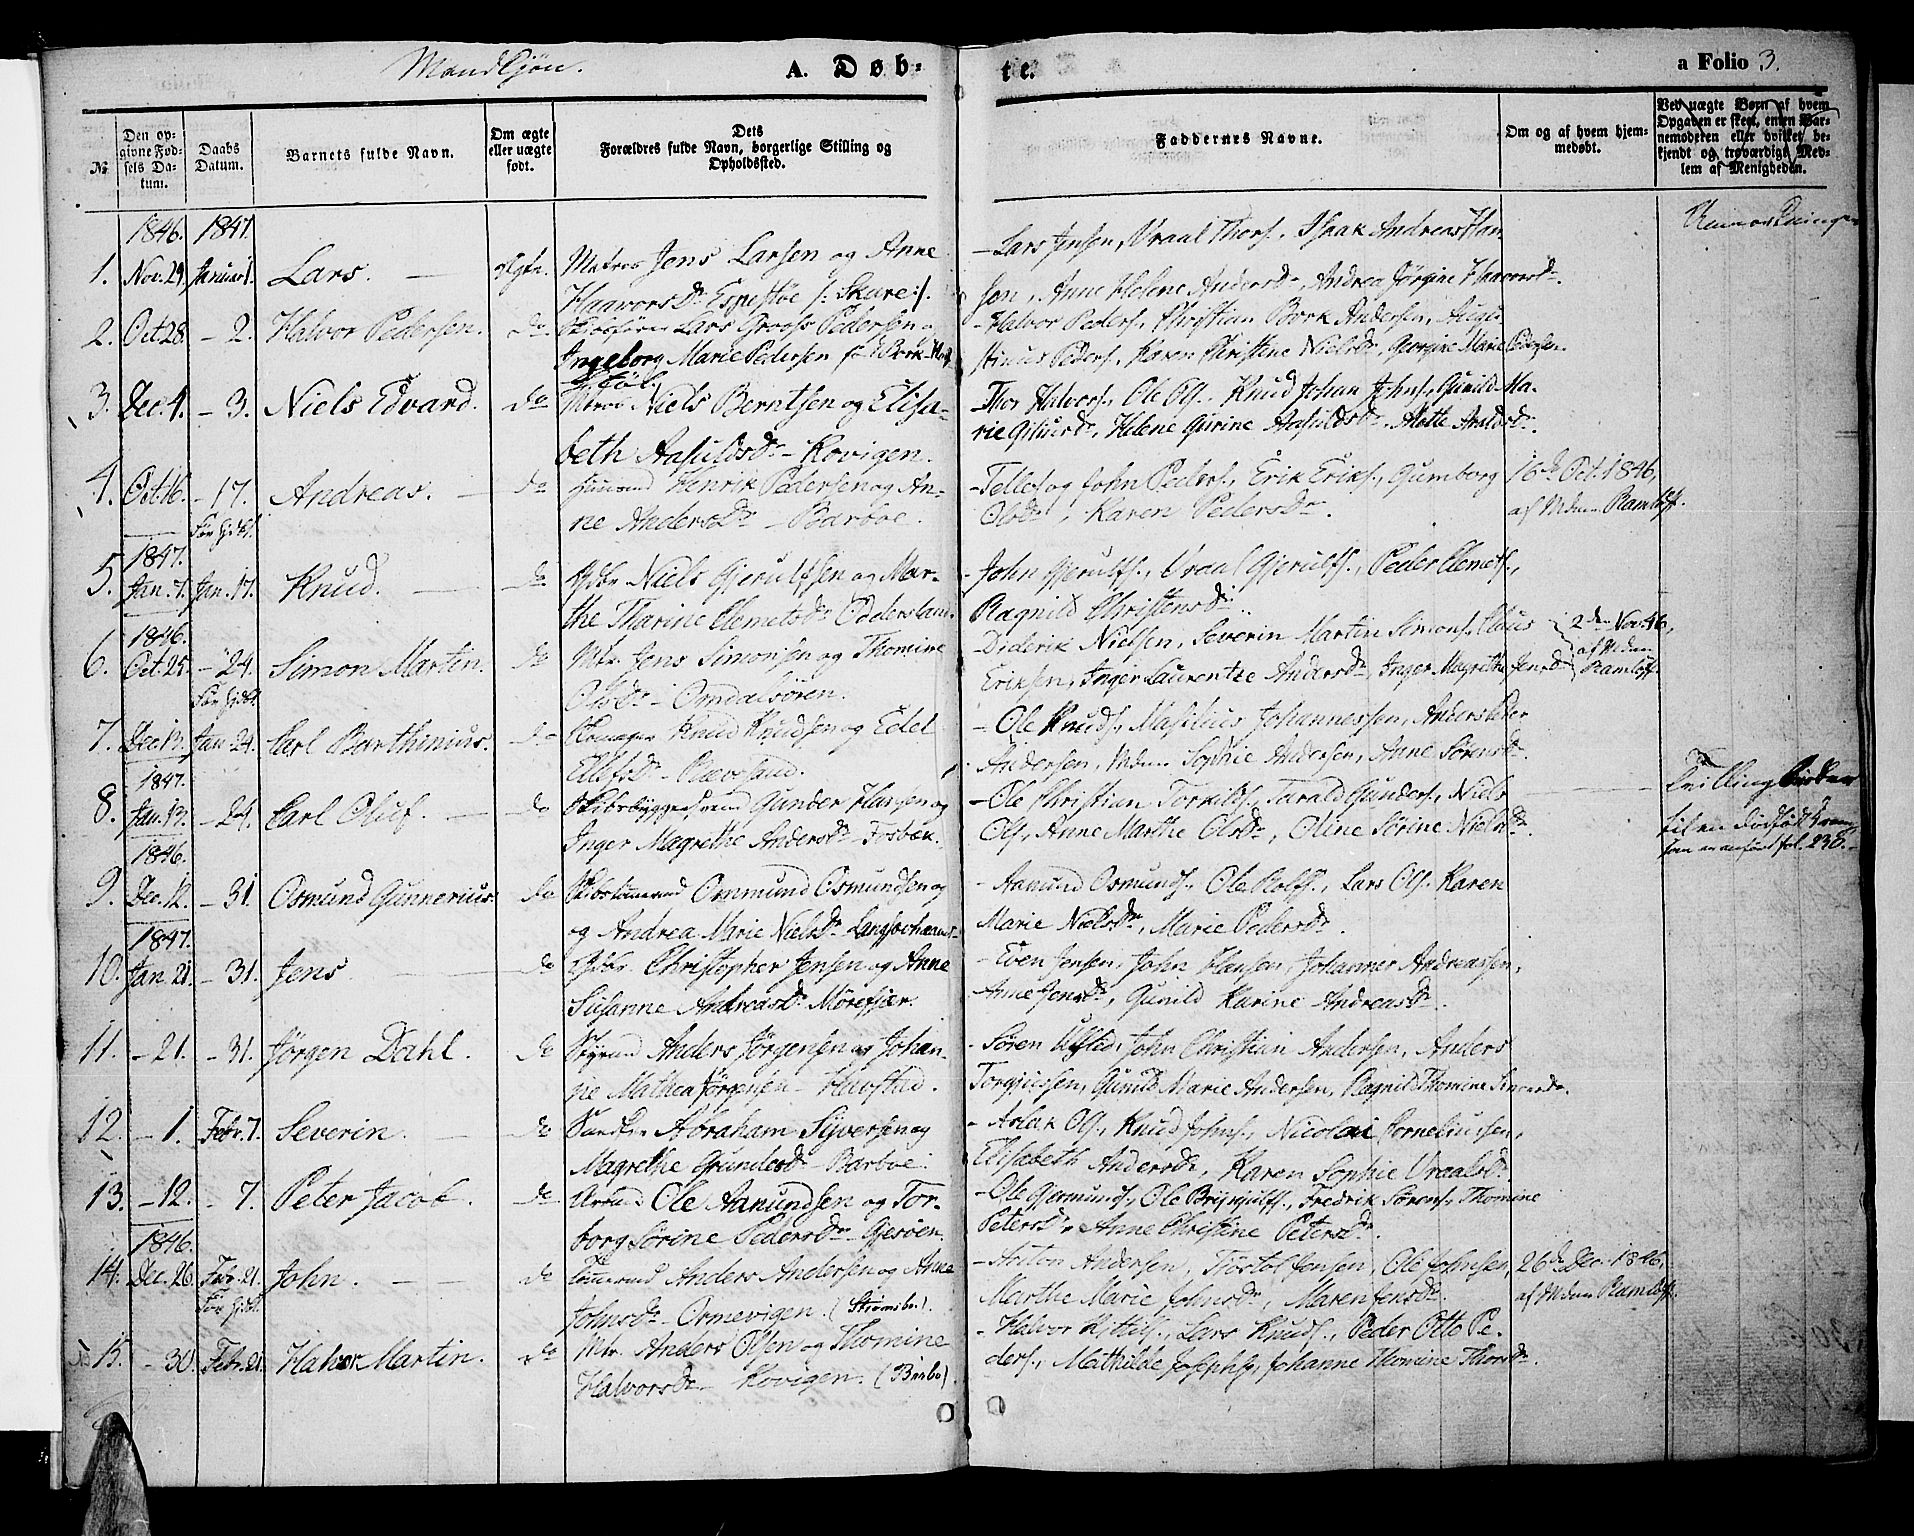 Mandkjøn. A. Døb- te. a Folio 3.
№
Den opgivne Fødsels Datum.
Daabs Datum.
Barnets fulde Navn.
Om ægte eller uægte født.
Dets Forældres fulde Navn, borgerlige Stilling og Opholdssted.
Faddernes Navne.
Om og af hvem hjemmedøbt.
Ved uægte Børn af hvem Opgaven er skeet, enten Barnemoderen eller hvilket bekjendt og troværdigt Medlem af Menigheden.
1846. 1847.
1. Nov. 29. Januar 1. Lars. Matros Jens Larsen og Anne
Haavorsdr Espestøe /: Skare :/.
Lars Jensen, Vraal Thors., Isaak Andreas Han-
sen, Anne Helene Andersdr, Andrea Jørgine Haavorsdr.
2. Oct. 28. - 2. Halvor Pedersen. do Lars Grooss Pedersen og
Ingeborg Marie Pedersen
- Halvor Peders., Christian Bork Andersen, Augu-
stinus Peders., Karen Christine Nielsdr, Georgine Marie Pedersen.
3. Dec. 4. - 3. Niels Edvard. do Matros Niels Berntsen og Elisa-
beth Aasuldsdr - Kovigen.
- Thor Halvors., Ole Ols., Knud Johan Johns., Gunild Ma-
rie Gjeruldsdr, Helene Gurine Aasuldsdr, Mette Arildsdr.
4. Oct. 16. - 17. Andreas. do Henrik Pedersen og An-
ne Andersdr - Barboe.
- Tellef og John Peders., Erik Eriks., Gumborg
Olsdr, Karen Pedersdr.
16de Oct. 1846,
af Mdm Ramløff.
1847.
5. Jan. 7. Jan. 17. Knud. do Gdbr Niels Gjerulfsen og Mar-
the Tharine Clemetsdr Oddersland.
- John Gjerulfs., Vraal Gjerulfs., Peder Clemets.,
Ragnild Christensdr.
1846.
6. Oct. 25. - 24. Simon Martin. do Mtr. Jens Simonsen og Thomine
Olsdr - Omdalsøren.
Diderik Nielsen, Severin Martin Simons., Claus
Eriksen, Inger Laurentze Andersdr, Inger Magrethe Jensdr
2den Nov. 46,
af Mdm
Ramløff.
7. Dec. 13. Jan. 24. Carl Barthinius. do Knud Knudsen og Edel
Ellefsdr - Rævesand.
- Ole Knuds., Masilius Johannessen, Anders Peter
Andersen, Mdm Sophie Andersen, Anne Sørensdr.
1847.
8. Jan. 13. - 24. Carl Oluf. do Gunder Hansen og
Inger Magrethe Andersdr - Fosbæk.
- Ole Christian Torkilds., Tarald Gunders., Niels
Ols., Anne Marthe Olsdr, Oline Sørine Nielsdr.
Tvilling
til en dødfødt
som er anført fol. 230.
1846.
9. Dec. 12. - 31. Osmund Gunnerius. do Ommund Osmundsen og
og Andrea Marie Nielsdr
- Aamund Osmunds., Ole Rolfs., Lars Ols., Karen
Marie Nielsdr, Marie Pedersdr.
1847.
10. Jan. 21. - 31. Jens do Gdbr. Christopher Jensen og Anne
Susanne Andreasdr Mørefjær.
- Even Jensen, John Hansen, Johannes Andreassen,
Anne Jensdr, Gunild Karine Andreasdr.
11. - 21. - 31. Jørgen Dahl. do Styrmd Anders Jørgensen og Johan-
ne Mathea Jørgensen - Havstad.
- Søren Ugland, John Christian Andersen, Anders
Torgjussen, Gunild Marie Andersen, Ragnild Thomine
12. - 1. Febr. 7. Severin. do Abraham Syversen og
Magrethe Gundersdr - Barboe.
- Aslak Ols., Knud Johns., Nicolai Corneliussen,
Elisabeth Andersdr, Karen Sophie Vraalsdr.
13. - 12. - 7. Peter Jacob. do Arbmd Ole Aamundsen og Tor-
borg Sørine Pedersdr - Gjesøen.
- Ole Gjermunds., Ole Brynjulfs., Fredrik Sørens., Thomine
Petersdr, Anne Christine Petersdr.
1846.
14. Dec. 26. Febr. 21. John. do Tømrmd Anders Andersen og Anne
Johnsdr - Ormevigen. (Strømsbo).
- Anton Andersen, Tjøstol Jensen, Ole Johnsen,
Marthe Marie Johnsdr, Maren Jensdr.
26de Dec. 1846,
af Mdm Ramløff.
15. - 30. Febr. 21. Halvor Martin. do Mtr. Anders Olsen og Thomine
Halvorsdr - Kovigen. (Barbo).
- Halvor Kjittils., Lars Knuds., Peder Otto Pe-
ders., Mathilde Josephs., Johanne Thomine Thorsdr.